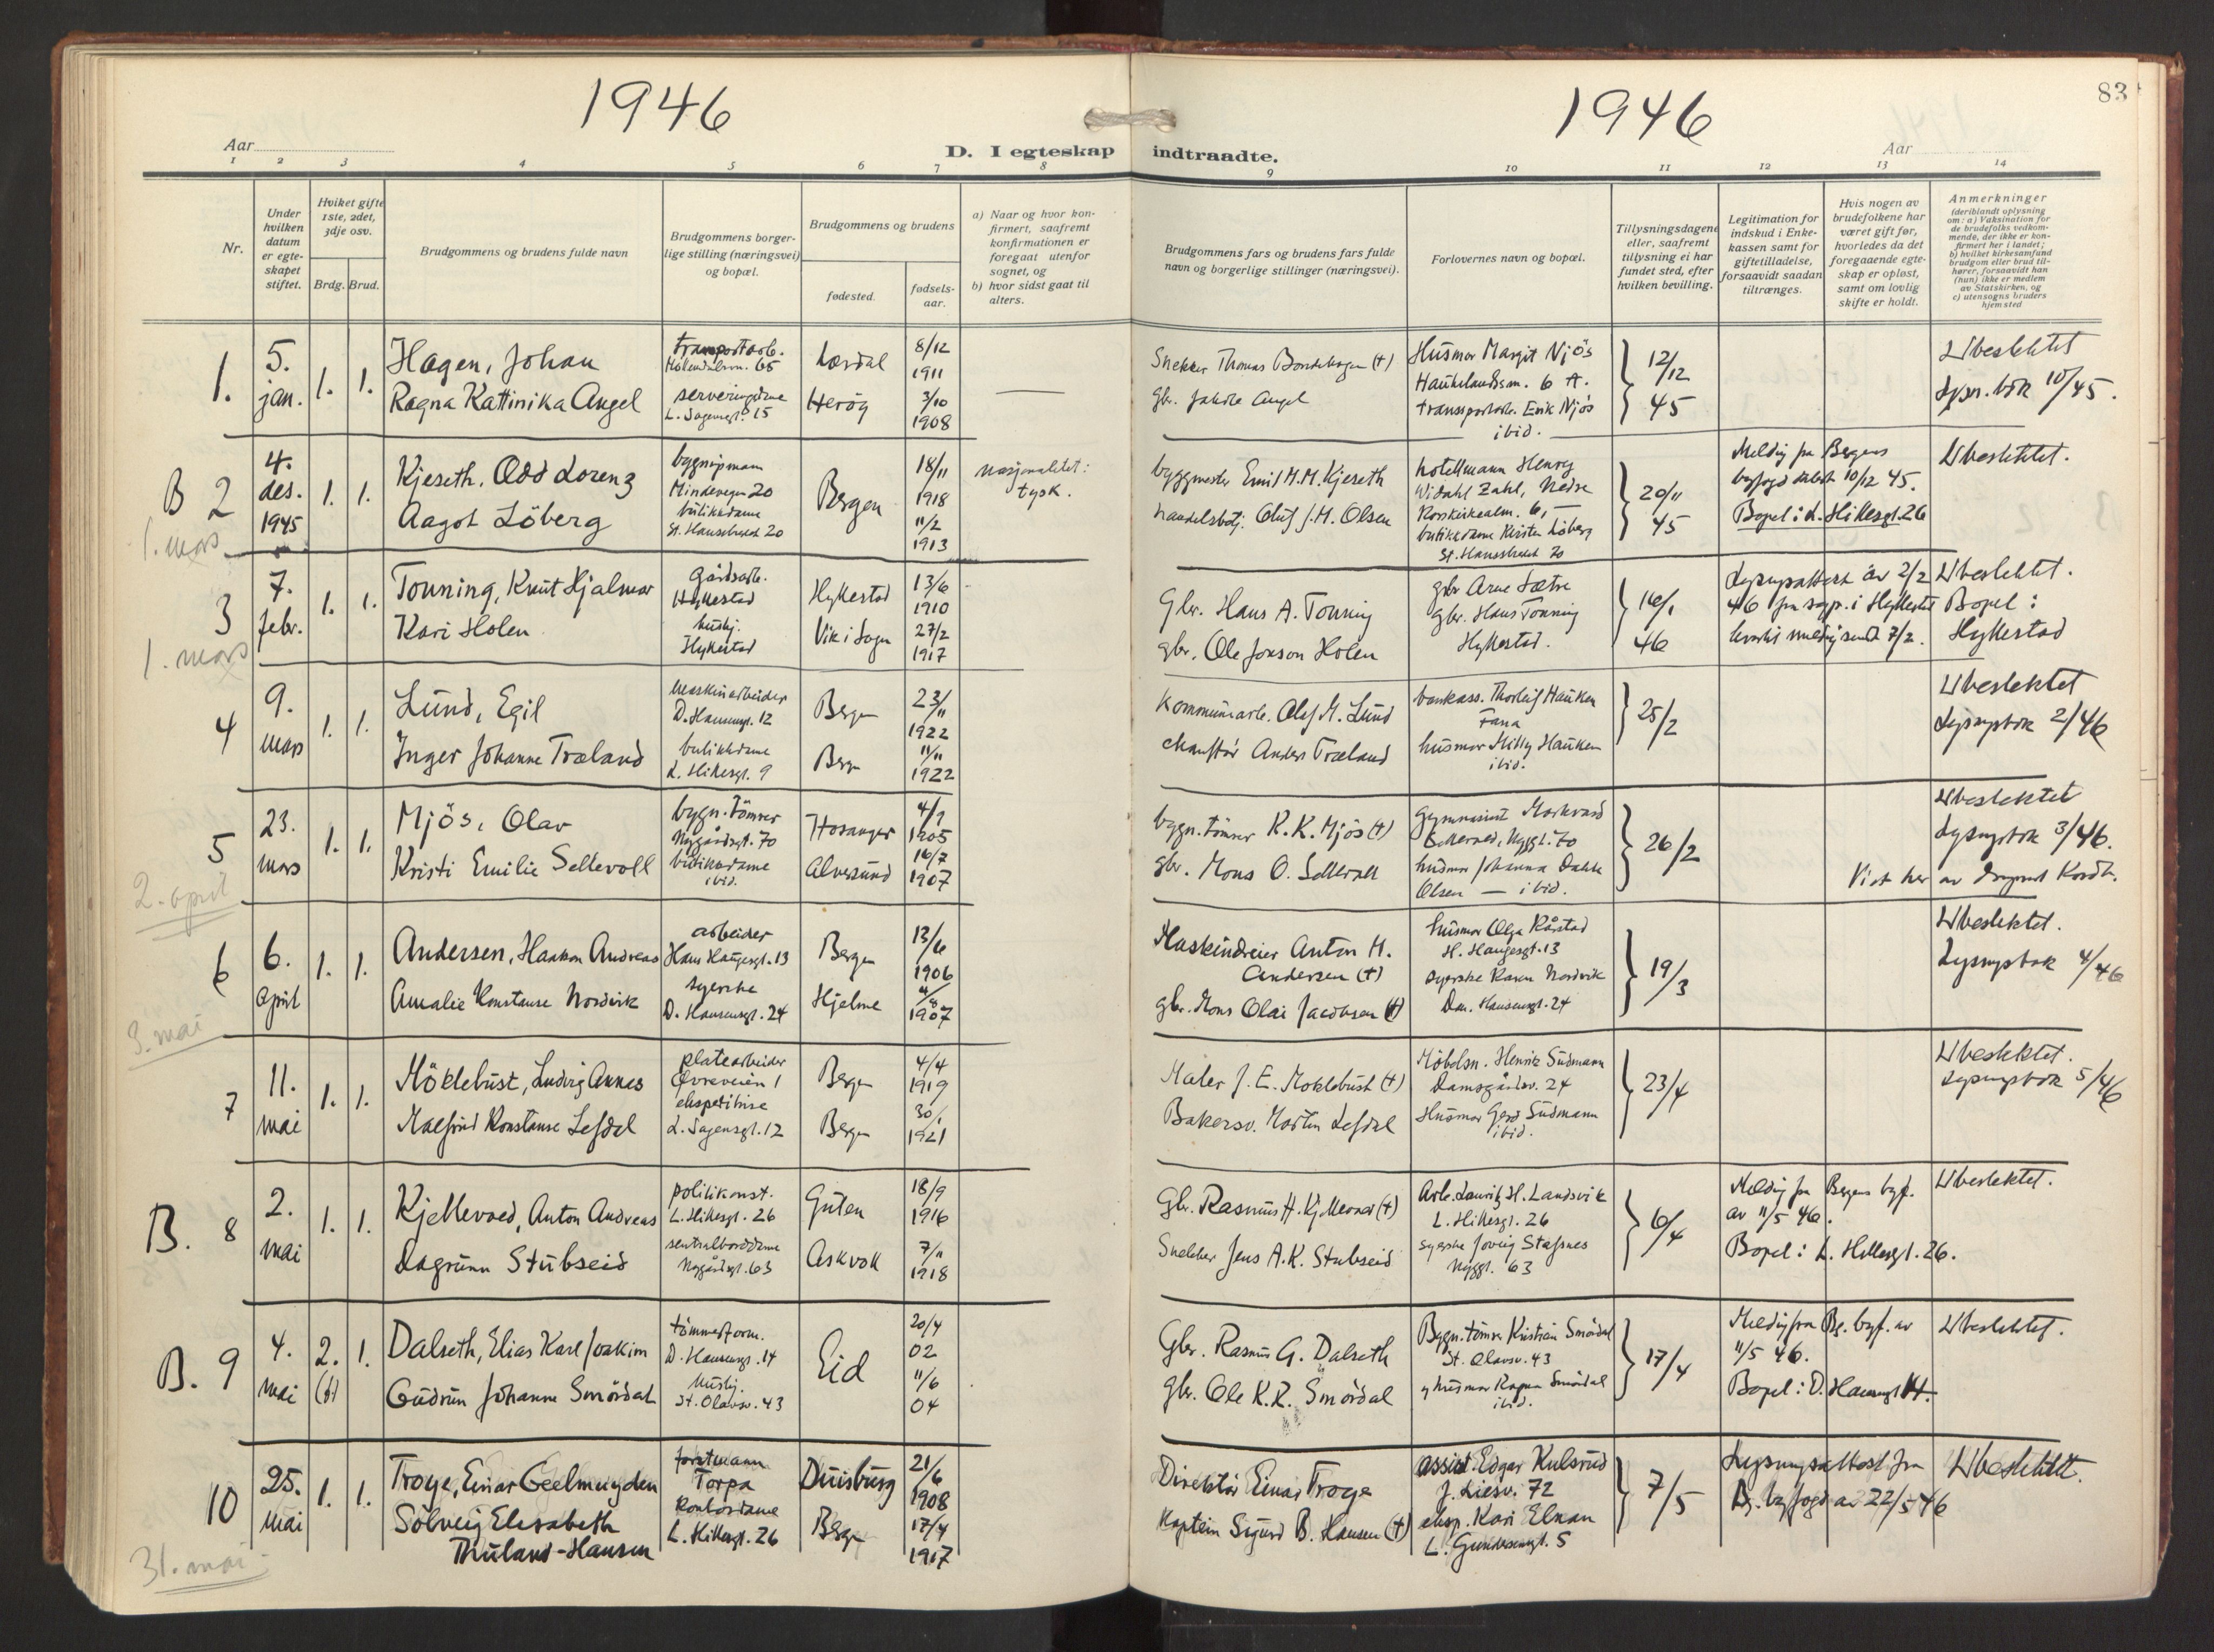 1946
1946
83
Aar
D. I egteskap indtraadte.
Aar
1 2 3 4 5 6 7 8 9 10 11 12 13 14
Nr.
Under hvilken datum er egteskapet stiftet.
Hviket gifte 1ste, 2det, 3dje osv.
Brdg. Brud.
Brudgommens og brudens fulde navn
Brudgommens borgerlige stilling (næringsvei) og bopæl.
Brudgommens og brudens
fødested.
fødselsaar.
a) Naar og hvor konfirmert, saafremt konfirmationen er foregaat utenfor sognet, og
b) hvor sidst gaat til alters.
Brudgommens fars og brudens fars fulde navn og borgerlige stillinger (næringsvei).
Forlovernes navn og bopæl.
Tillysningsdagene eller, saafremt tillysning ei har fundet sted, efter hvilken bevilling.
Legitimation for indskud i Enkekassen samt for giftetilladelse, forsaavidt saadan tiltrænges.
Hvis nogen av brudefolkene har været gift før, hvorledes da det foregaaende egteskap er opløst, samt om lovlig skifte er holdt.
Anmerkninger
(deriblandt oplysning om: a) Vaksination for de brudefolks vedkommende, der ikke er konfirmert her i landet;
b) hvilket kirkesamfund brudgom eller brud tilhører, forsaavidt han (hun) ikke er medlem av Statskirken, og
c) utensogns bruders hjemsted
1. 5. jan. 1. 1.
Hagen, Johan
Ragna Kattinika Angel
transportarb.
65
L. Sagensgt. 15
Lærdal
Heröy
8/12 1911
3/10 1908
Snekker Thomas (+)
gbr. Angel
Husmor Margit Njös
6 A.
transportarb. Erik Njös
ibid.
12/12 45
Ubeslektet
10/45.
B 2 4. des. 1945 1. 1.
Kjeseth, Odd Lorenz
Aagot Löberg
Mindevegen 20
butikkdame
20
Bergen
18/11 1918
11/2 1913
nasjonalitet: tysk.
byggmester Emil H.M. Kjeseth
Oluf J.M. Olsen
hotellmann Henry
Widahl Zahl, Nedre
Korskirkealm. 6,
butikkdame Kirsten Löberg
20
20/11 45
Melding fra Bergens
byfogd datert 10/12 45.
Bopel: L. Hillesgt. 26
Ubeslektet.
1. mars
3 7. febr. 1. 1.
Tonning, Knut Hjalmar
Kari Holen
Gårdsarb.
Hyllestad
hushj.
Hyllestad
Hyllestad
Vik i Sogn
13/6 1910
27/2 1917
Gbr. Hans A. Tonning
gbr. Ole Jonson Holen
gbr Arne Sætre
gbr. Hans Tonning
Hyllestad.
16/1 46
Lysningsattest av 2/2
46 fra sogn. i Hyllestad
7/2.
Ubeslektet.
Bopel:
Hyllestad
1. mars
4 9. mars 1. 1.
Lund, Egil
Inger Johanne Træland
maskinarbeider
D. Hansensgt. 12
butikkdame
L. Hillesgt. 9
Bergen
Bergen
23/11 1922
11/11 1922
Kommunearb. Olaf M. Lund
chaufför Anders Træland
bankass. Thorleif Hauken
Fana
husmor Milly Hauken
ibid.
25/2
Ubeslektet
Lysningsbok 2/46
5 23. mars 1. 1.
Mjös, Olav
Kristi Emilie Sellevoll
bygn. tömrer
Nygårdsgt. 70
butikkdame
ibid.
Hosanger
Alversund
4/1 1905
16/7 1907
bygn. tömrer K.K. Mjös (+)
gbr. Mons O. Sellevoll
gymnasiast
70
husmor Johanna
Olsen — ibid.
26/2
Ubeslektet
Lysningsbok 3/46.
Viet her av
2. april
6 6. april 1. 1.
Andersen, Haakon Andreas
Amalie Konstanse Nordvik
arbeider
Hans Haugesgt. 13
syerske
D. Hansensgt. 24
Bergen
Hjelme
13/6 1906
4/8 1907
Maskindreier Anton M.
Andersen (+)
gbr. Mons Olai Jacobsen (+)
husmor Olga Rårstad
H. Haugesgt. 13
syerske Karen Nordvik
Dan. Hansensgt. 24
19/3
Ubeslektet.
Lysningsbok 4/46
3. mai
7 11. mai 1. 1.
Möklebust, Ludvig Annes
Malfrid Konstanse Lefdal
platearbeider
Øvreveien 1
ekspeditrise
L. Sagensgt. 12
Bergen
Bergen
4/4 1919
30/1 1921
Maler J.E. Moklebust (+)
Bakersv. Martin Lefdal
Möbelsn. Henrik Sudmann
Damsgårdsv. 24
Husmor Gerd Sudmann
ibid.
23/4
Ubeslektet.
Lysningsbok 5/46
B. 8 2. mai 1. 1.
Kjellevoed, Anton Andreas
Dagrunn Stubseid
politikonst.
L. Hillesgt. 26
sentralborddame
Nygårdsgt. 63
Gulen
Askvoll
18/9 1916
7/11 1918
Gbr. Rasmus H. Kjellevoed (+)
Snekker Jens A.K. Stubseid
Arb. Lauritz H. Landsvik
L. Hillesgt. 26
syerske Stafsnes
Nyggt. 63
6/4
Melding fra Bergens byf.
av 11/5 46.
Bopel: L. Hillesgt. 26.
Ubeslektet.
B. 9 4. mai 2. 1.
Dalseth, Elias Karl Joakim
Gudrun Johanne Smördal
tömmerform.
D. Hansensgt. 14
hushj.
St. Olavsv. 43
Eid
20/4 02
11/6 04
Gbr. Rasmus G. Dalseth
gbr. Ole K.R. Smördal
Bygn. tömrer Kristian Smördal
St. Olavsv. 43
husmor Ragna Smördal
ibid.
17/4
Melding fra Bg. byf. av
11/5 46.
Bopel: D. Hansensgt 14.
Ubeslektet.
10 25. mai 1. 1.
Troye, Einar Geelmuyden
Sölveig Elisabeth
Thuland-Hansen
forstmann
Torpa
kontordame
L. Hillesgt. 26
Duisburg
Bergen
21/6 1908
17/4 1917
Direktör Einar Troye
Kaptein Sigurd B. Hansen (+)
assist. Edgar Kulsrud
J. Liesv. 72
eksp. Kari Elnan
L. Gundersensgt. 5
7/5
Lysningsattest fra
Bg. byfogd av 22/5 46
Ubeslektet.
31. mai